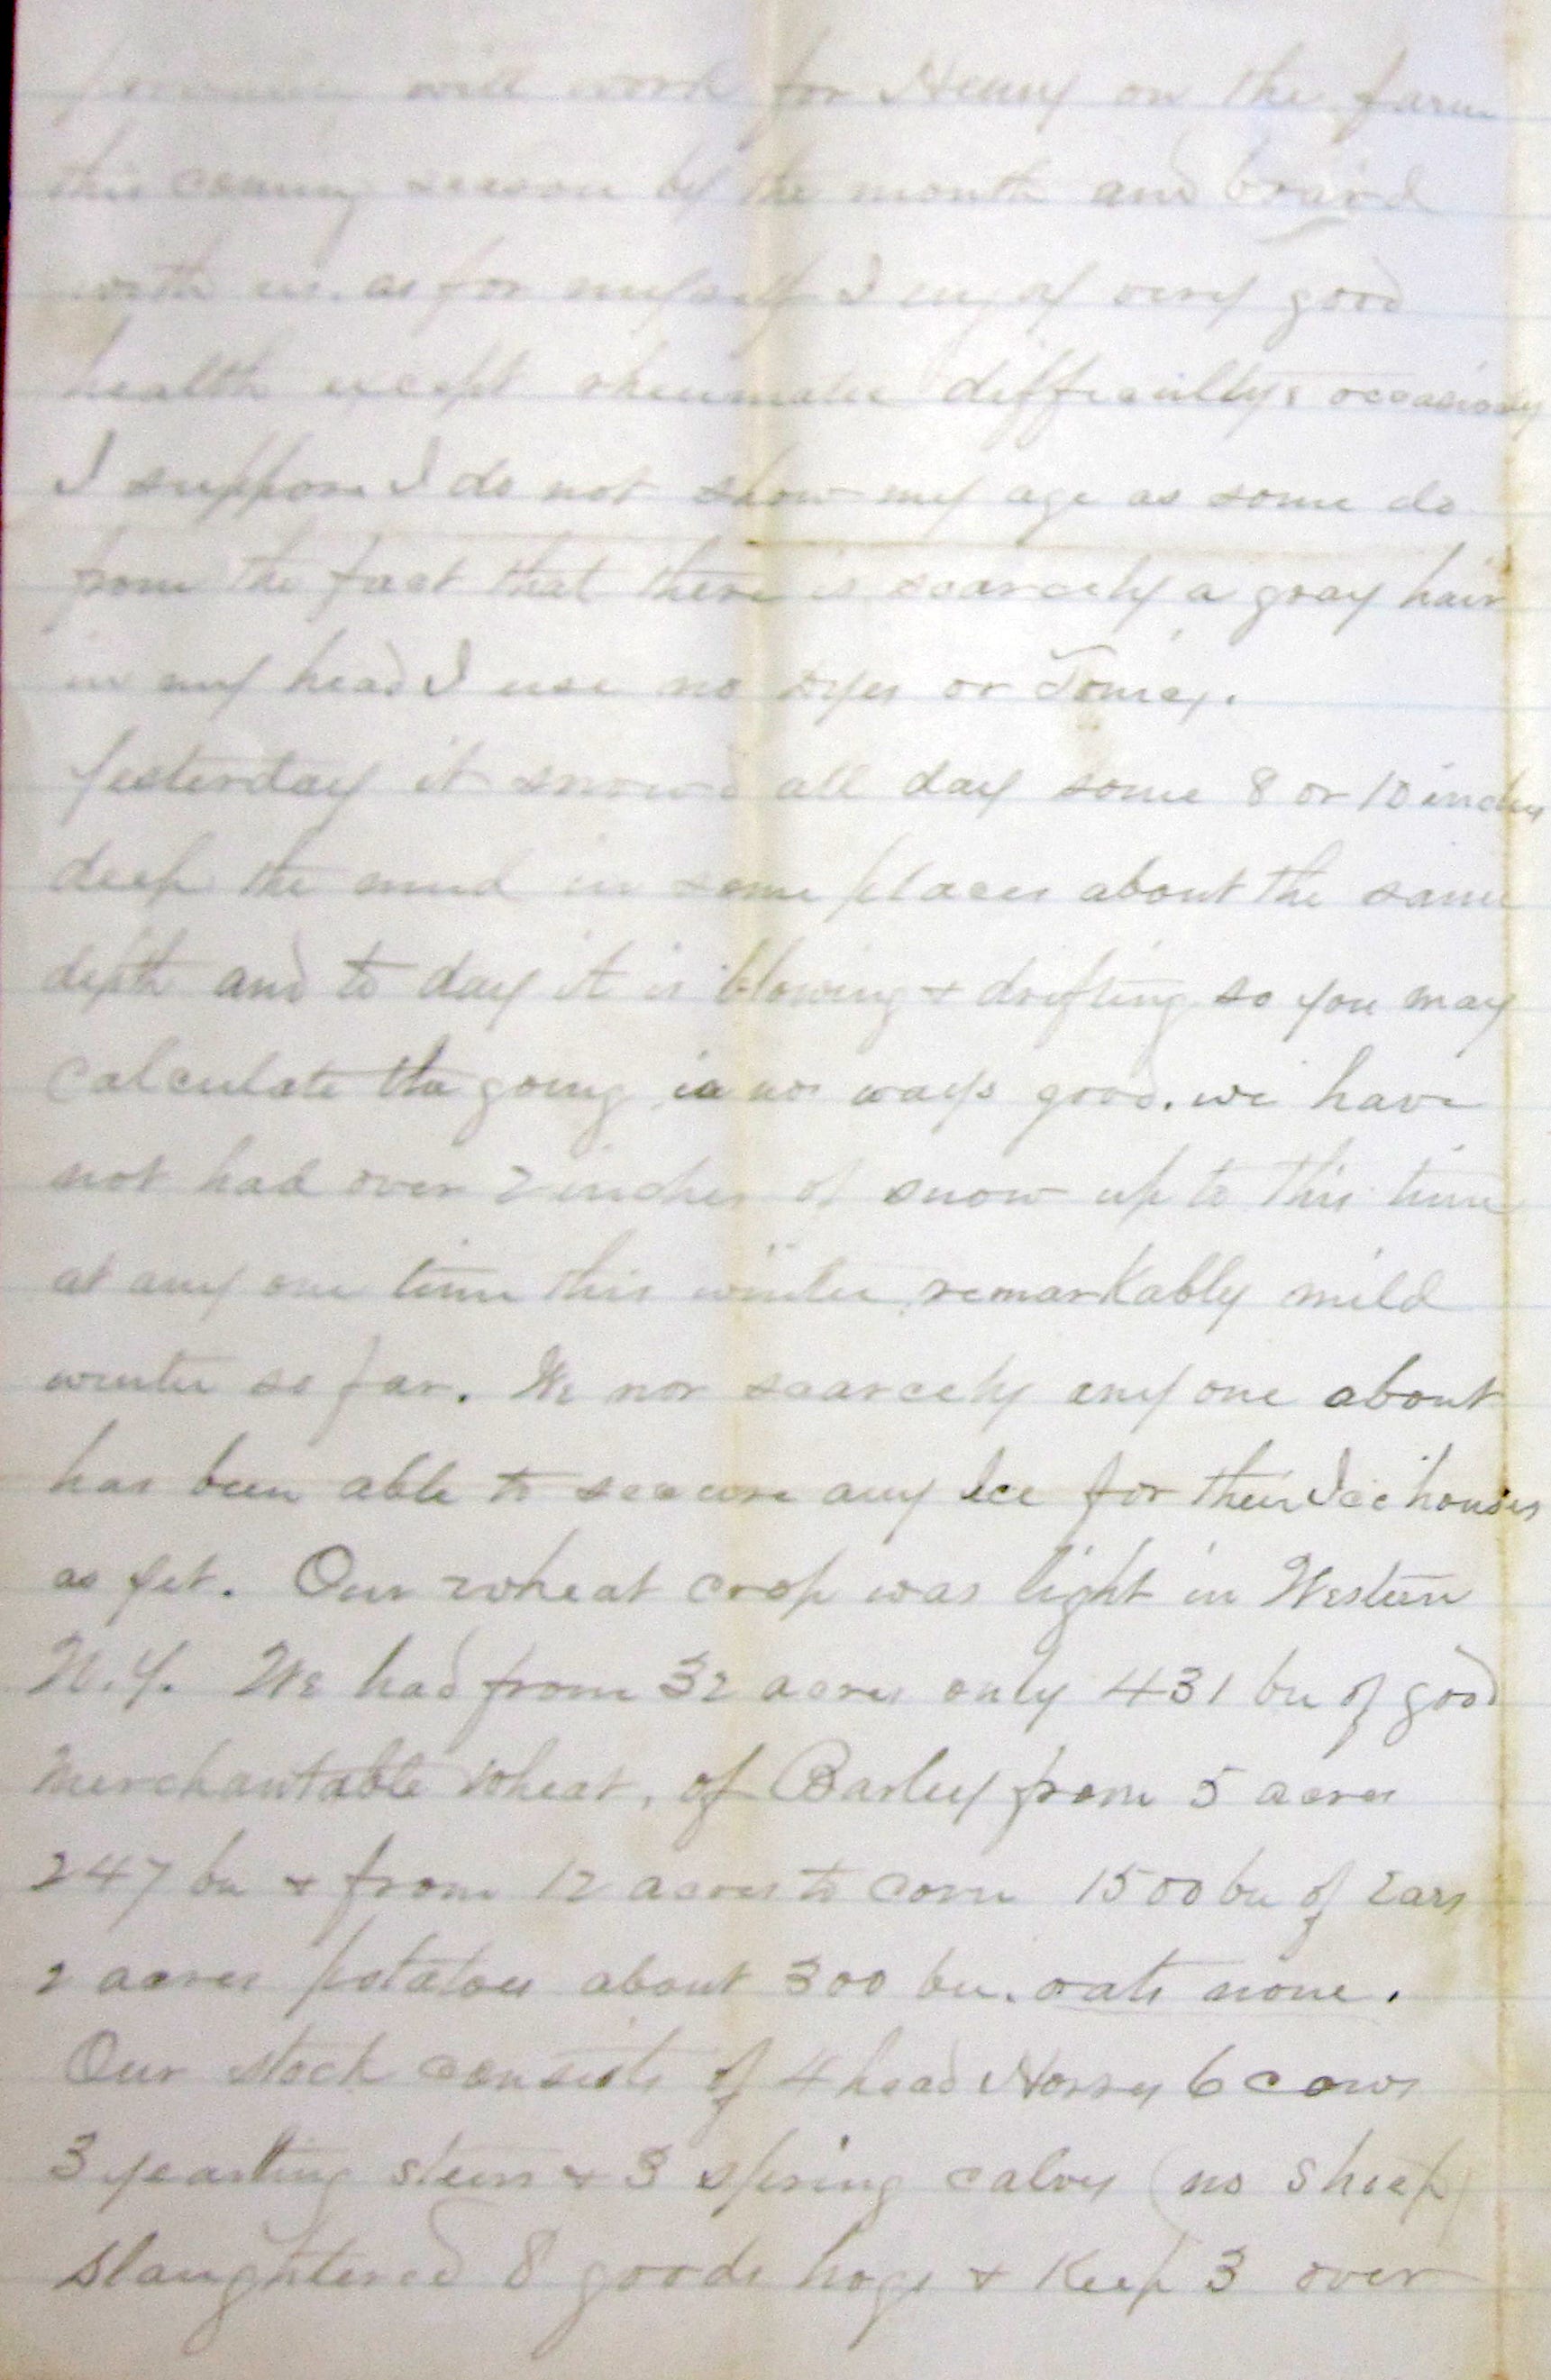 will work for Henry on the farm
this coming season by the month and board
with us. as for myself I enjoy very good
health except rheumatic difficultys occasionly
I suppose I do not show my age as some do
from the fact that there is scarcely a gray hair
in my head I use no dyes or Tonics.
Yesterday it snowed all day some 8 or 10 inches
deep the mud in some places about the same
depth and to day it is blowing + drifting so you may
calculate the going is no ways good. we have
not had over 2 inches of snow up to this time
at any one time this winter remarkably mild
winter so far. We nor scarcely any one about
has been able to seecure any Ice for their Ice houses
as yet. Our wheat crop was light in Western
N.Y. We had from 32 acres only 431 bu of good
merchantable wheat, of Barley from 5 acres
247 bu + from 12 acres to corn 1500 bu of Ears
2 acres potatoes about 300 bu. oats none.
Our stock consists of 4 head Horses 6 cows
3 yearling steers + 3 spring calves (no sheep)
slaughtered 8 goods hogs + Keep 3 over